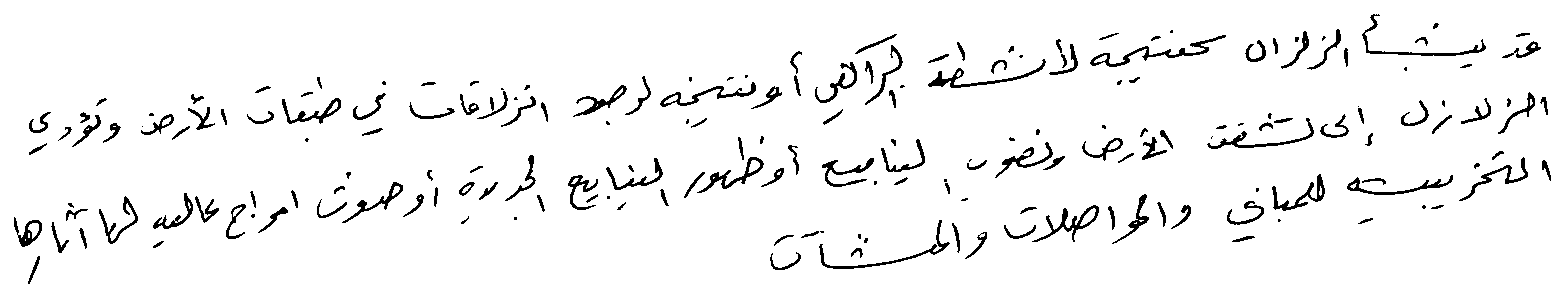 قد ينشأ الزلزال كنتيجة لأنشطة البراكين أو نتيجة لوجود انزلاقات في طبقات الأرض وتؤدي
الزلازل إلى تشقق الأرض ونضوب الينابيع أو ظهور الينابيع الجديدة أو حدوث امواج عاليه لها آثارها
التخريبيه للمباني والمواصلات والمنشآت